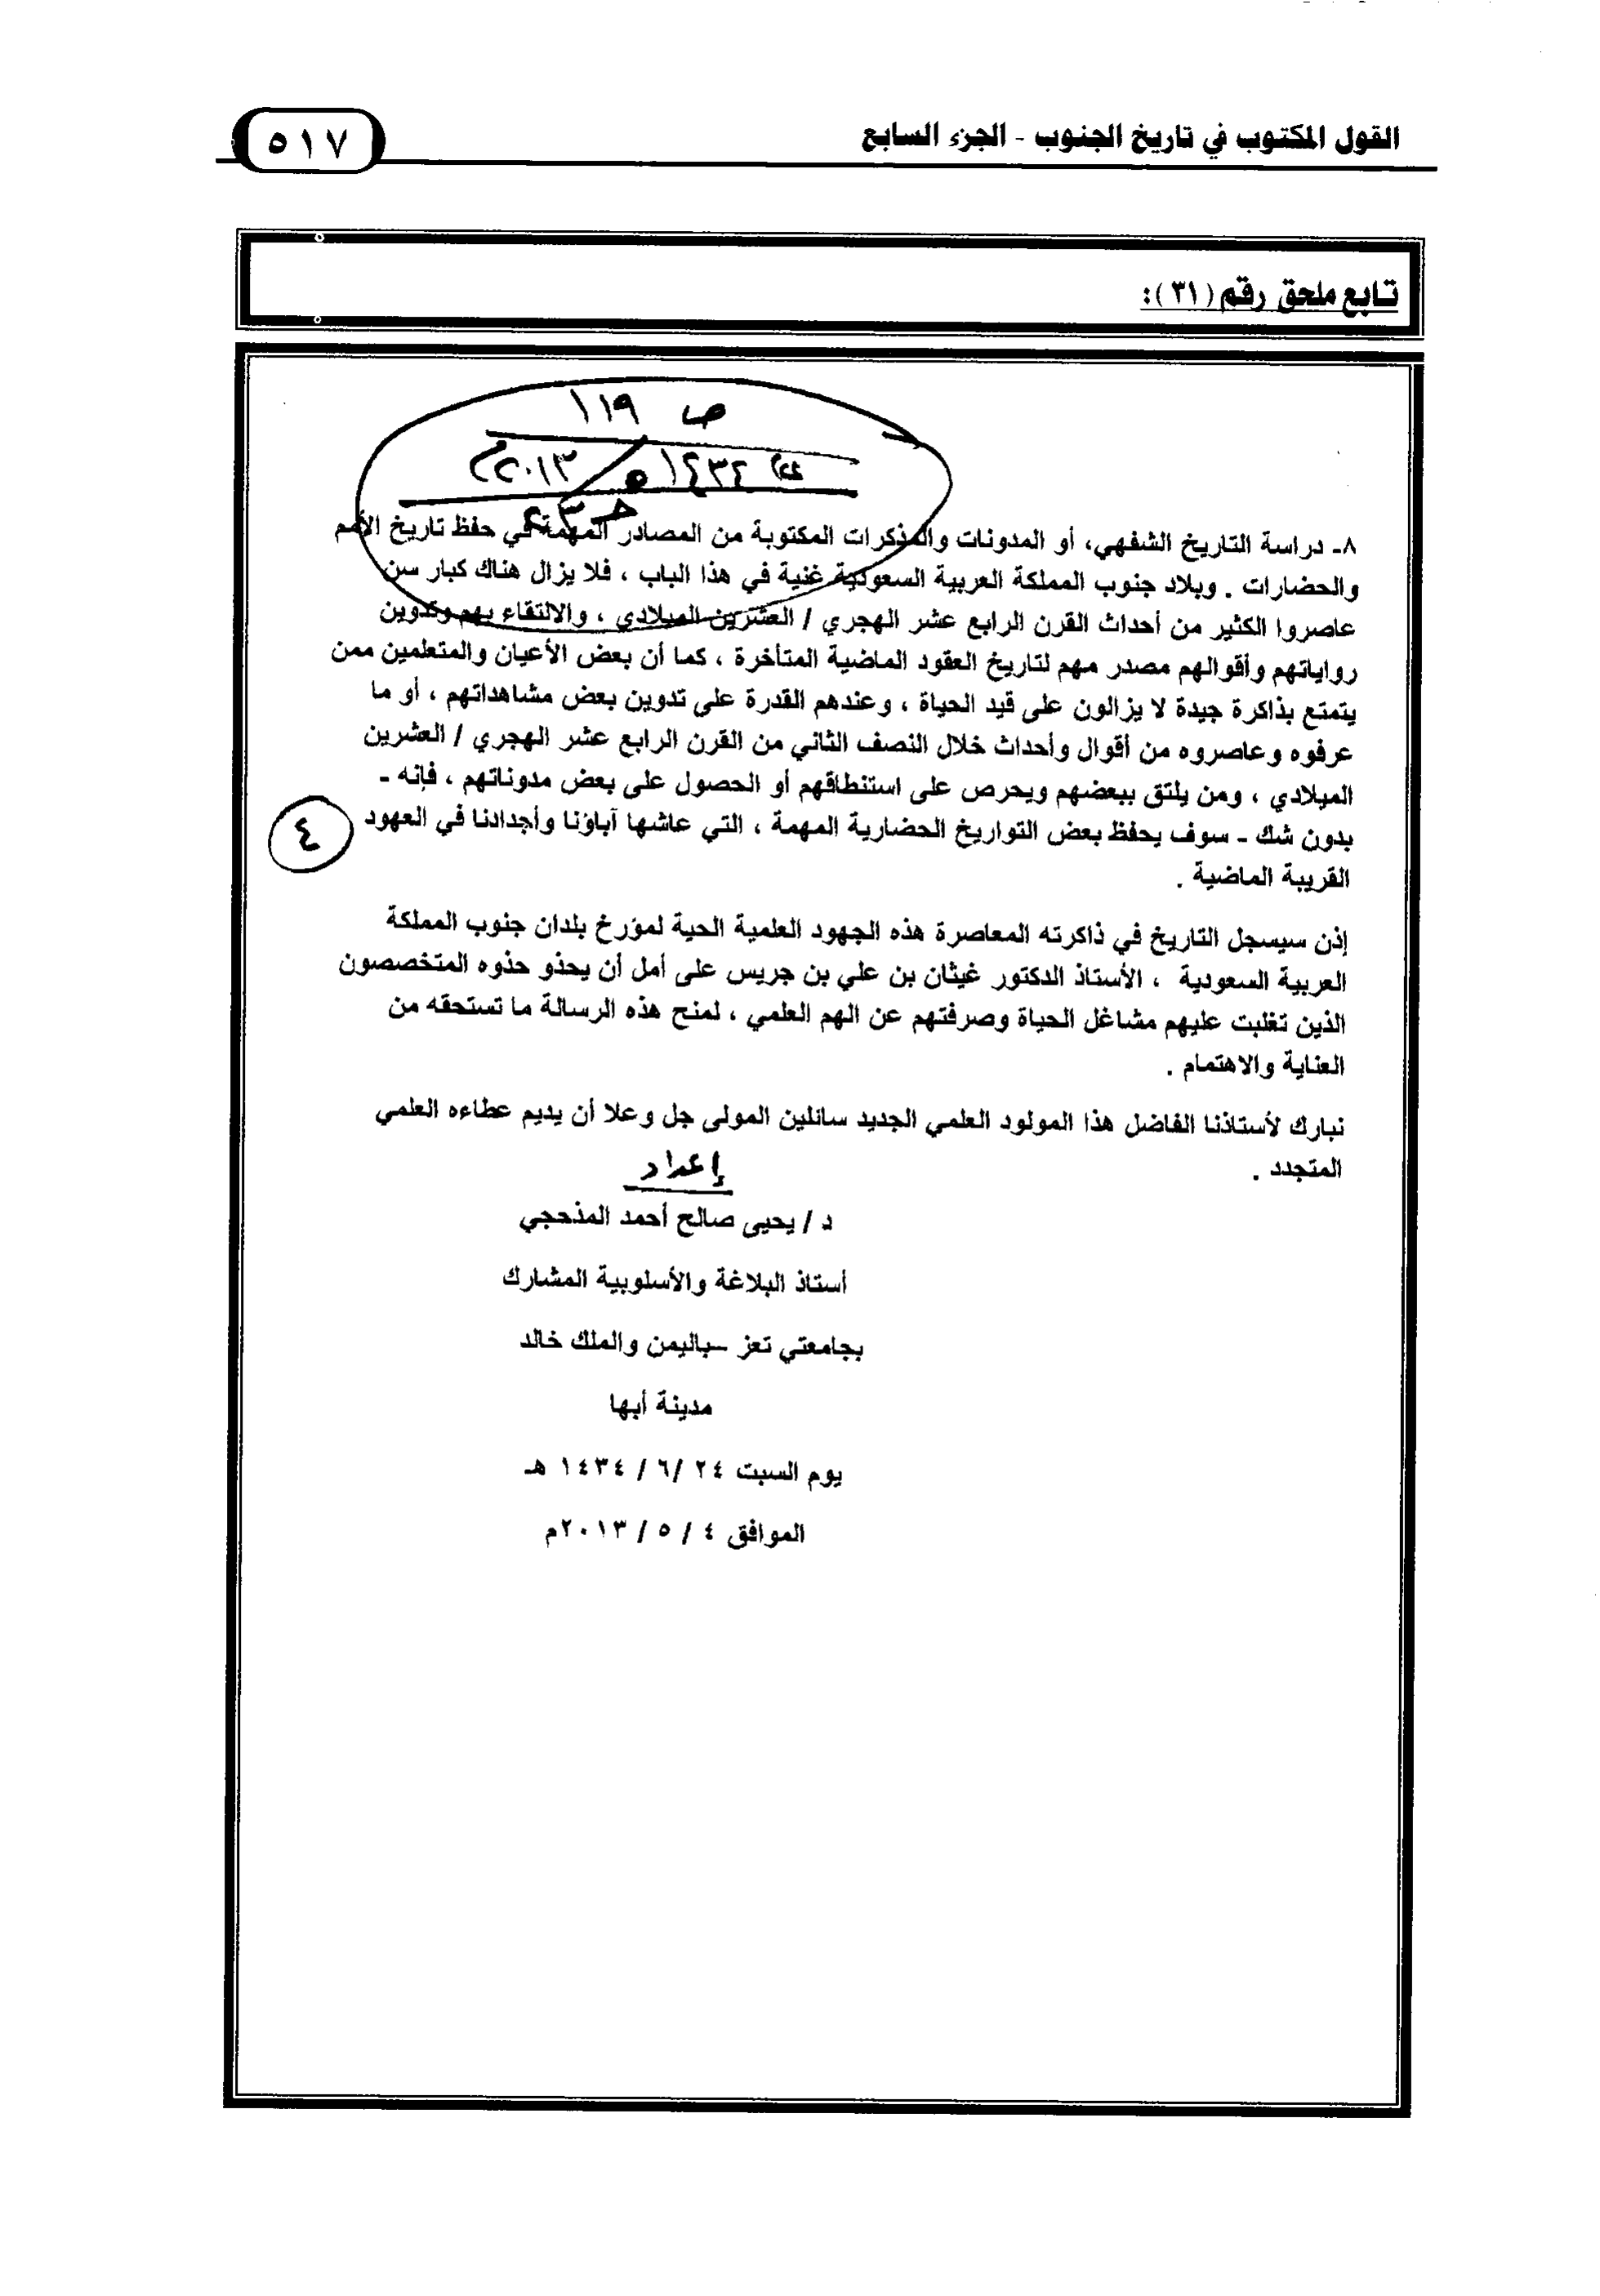 القول المكتوب في تاريخ الجنوب - الجزء السابع
٥١٧
تابع ملحق رقم (٣١):
ص ١١٩
١٤٣٤ هـ / ٢٠١٣م
٨- دراسة التاريخ الشفهي، أو المدونات والمذكرات المكتوبة من المصادر المهمة في حفظ تاريخ الأمم
والحضارات . وبلاد جنوب المملكة العربية السعودية غنية في هذا الباب ، فلا يزال هناك كبار سن
عاصروا الكثير من أحداث القرن الرابع عشر الهجري / العشرين الميلادي ، والالتقاء بهم وتدوين
رواياتهم وأقوالهم مصدر مهم لتاريخ العقود الماضية المتأخرة ، كما أن بعض الأعيان والمتعلمين ممن
يتمتع بذاكرة جيدة لا يزالون على قيد الحياة ، وعندهم القدرة على تدوين بعض مشاهداتهم ، أو ما
عرفوه وعاصروه من أقوال وأحداث خلال النصف الثاني من القرن الرابع عشر الهجري / العشرين
الميلادي ، ومن يلتق ببعضهم ويحرص على استنطاقهم أو الحصول على بعض مدوناتهم ، فإنه -
بدون شك - سوف يحفظ بعض التواريخ الحضارية المهمة ، التي عاشها آباؤنا وأجدادنا في العهود
٤
القريبة الماضية .
إذن سيسجل التاريخ في ذاكرته المعاصرة هذه الجهود العلمية الحية لمؤرخ بلدان جنوب المملكة
العربية السعودية ، الأستاذ الدكتور غيثان بن علي بن جريس على أمل أن يحذو حذوه المتخصصون
الذين تغلبت عليهم مشاغل الحياة وصرفتهم عن الهم العلمي ، لمنح هذه الرسالة ما تستحقه من
العناية والاهتمام .
نبارك لأستاذنا الفاضل هذا المولود العلمي الجديد سائلين المولى جل وعلا أن يديم عطاءه العلمي
المتجدد .
إعداد
د / يحيى صالح أحمد المذحجي
أستاذ البلاغة والأسلوبية المشارك
بجامعتي تعز –باليمن والملك خالد
مدينة أبها
يوم السبت ٢٤ /٦ / ١٤٣٤ هـ
الموافق ٤ / ٥ / ٢٠١٣م